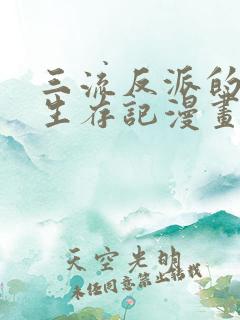 三流反派的
生存記漫畫
天空光明
未经同意禁止转载